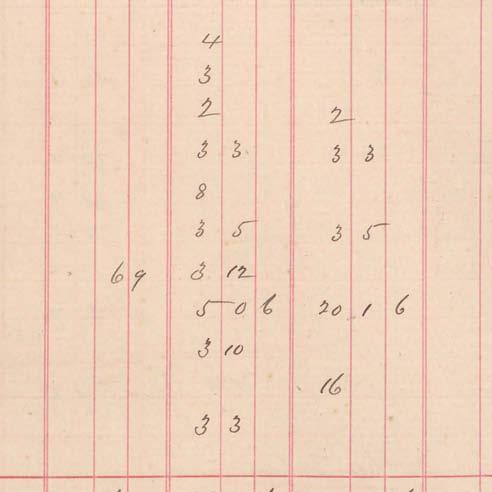 4
3
2 2
3 3 3 3
8
3 5 3 5
6 9 3 12
5 0 6 20 1 6
3 10
16
3 3